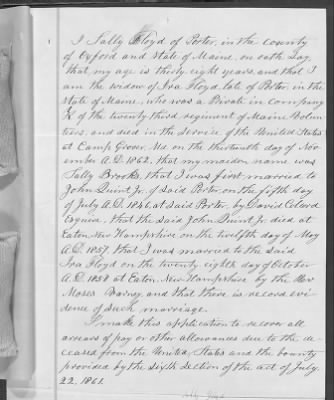 I Sally Floyd of Porter, in the County
of Oxford and State of Maine, on oath Say
that my age is thirty eight years, and that I
am the widow of Ira Floyd, late of Porter, in the
State of Maine, who was a Private in Company
of the twenty third regiment of Maine Volun
teers, and died in the Service of the United States
at Camp Grover, Md. on the thirteenth day of Nov
ember A.D. 1862, that my maiden name was
Sally Brooks, that I was first married to
John Quint Jr. of Said Porter, on the fifth day
of July A.D. 1846, at Said Porter, by David
Esquire, that the said John Quint Jr. died at
Eaton New Hampshire on the twelfth day of May
A.D. 1857, that I was married to the Said
Ira Floyd on the twenty eighth day of October
A.D. 1858 at Eaton, New Hampshire by the Rev
Moses and that there is record evi
dence of such marriage.
I make this application to recover all
arrears of pay or other allowances due to the de
ceased from the United States and the bounty
provided by the Sixth Section of the act of July,
22. 1861.